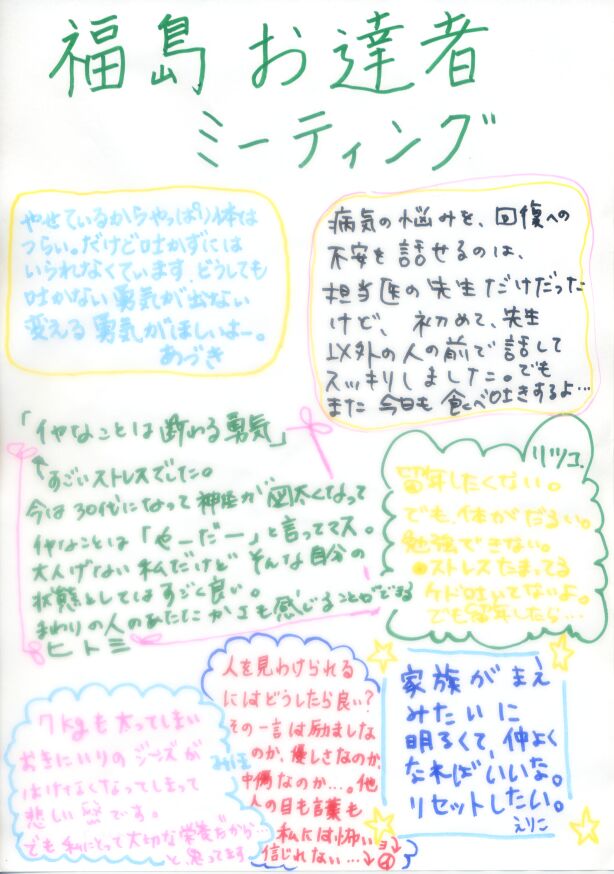 福島お達者
ミーティング
やせているからやっぱり体は
つらい。だけど吐かずには
いられなくています。どうしても
吐かない勇気が出ない
変える勇気がほしいよー。
あづき
病気の悩みを、回復への
不安を話せるのは、
担当医の先生だけだった
けど、初めて、先生
以外の人の前で話して
スッキリしました。でも
また今日も食べ吐きするよ…
「イヤなことは断わる勇気」
↑すごいストレスでした。
今は30代になって神経が図太くなって
イヤなことは「やーだー」と言ってマス。
大人げない私だけどそんな自分の
状態としてはすごく良い。
まわりの人のあたたかさも感じることができる
ヒトミ
リツコ
留年したくない。
でも、体がだるい。
勉強できない。
ストレスたまってる
ケド吐いてないよ。
でも留年したら…
7kgも太ってしまい
お気にいりのジーズが
はけなくなってしまって
悲しい です。
でも私にとって大切な栄養だから…
と、思ってます
みほ
人を見わけられる
にはどうしたら良い?
その一言は励ましな
のか、優しさなのか、
中傷なのか…。他
人の目も言葉も
私には怖い
信じれない…
家族がまえ
みたいに
明るくて、仲よく
なればいいな。
リセットしたい。
えりこ